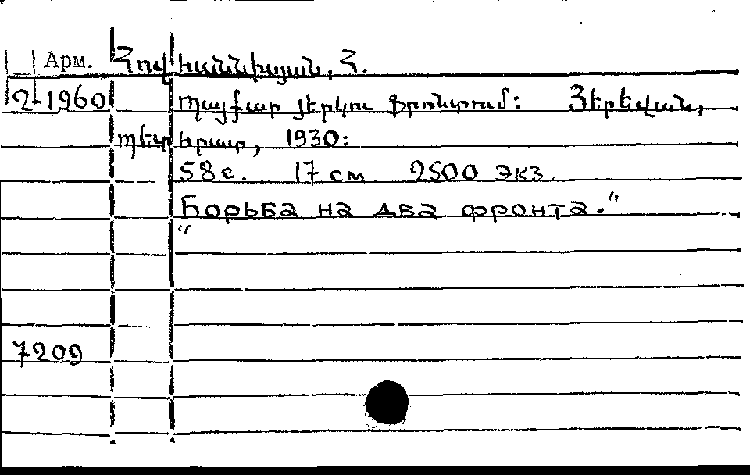 Арм. Հովհաննիսյան, Հ.
2-1960 Պայքար յերկու ֆրոնտում: Յերեվան,
պետհրատ, 1930:
58 с. 17 см 2500 экз.
„Борьба на два фронта.“
7209